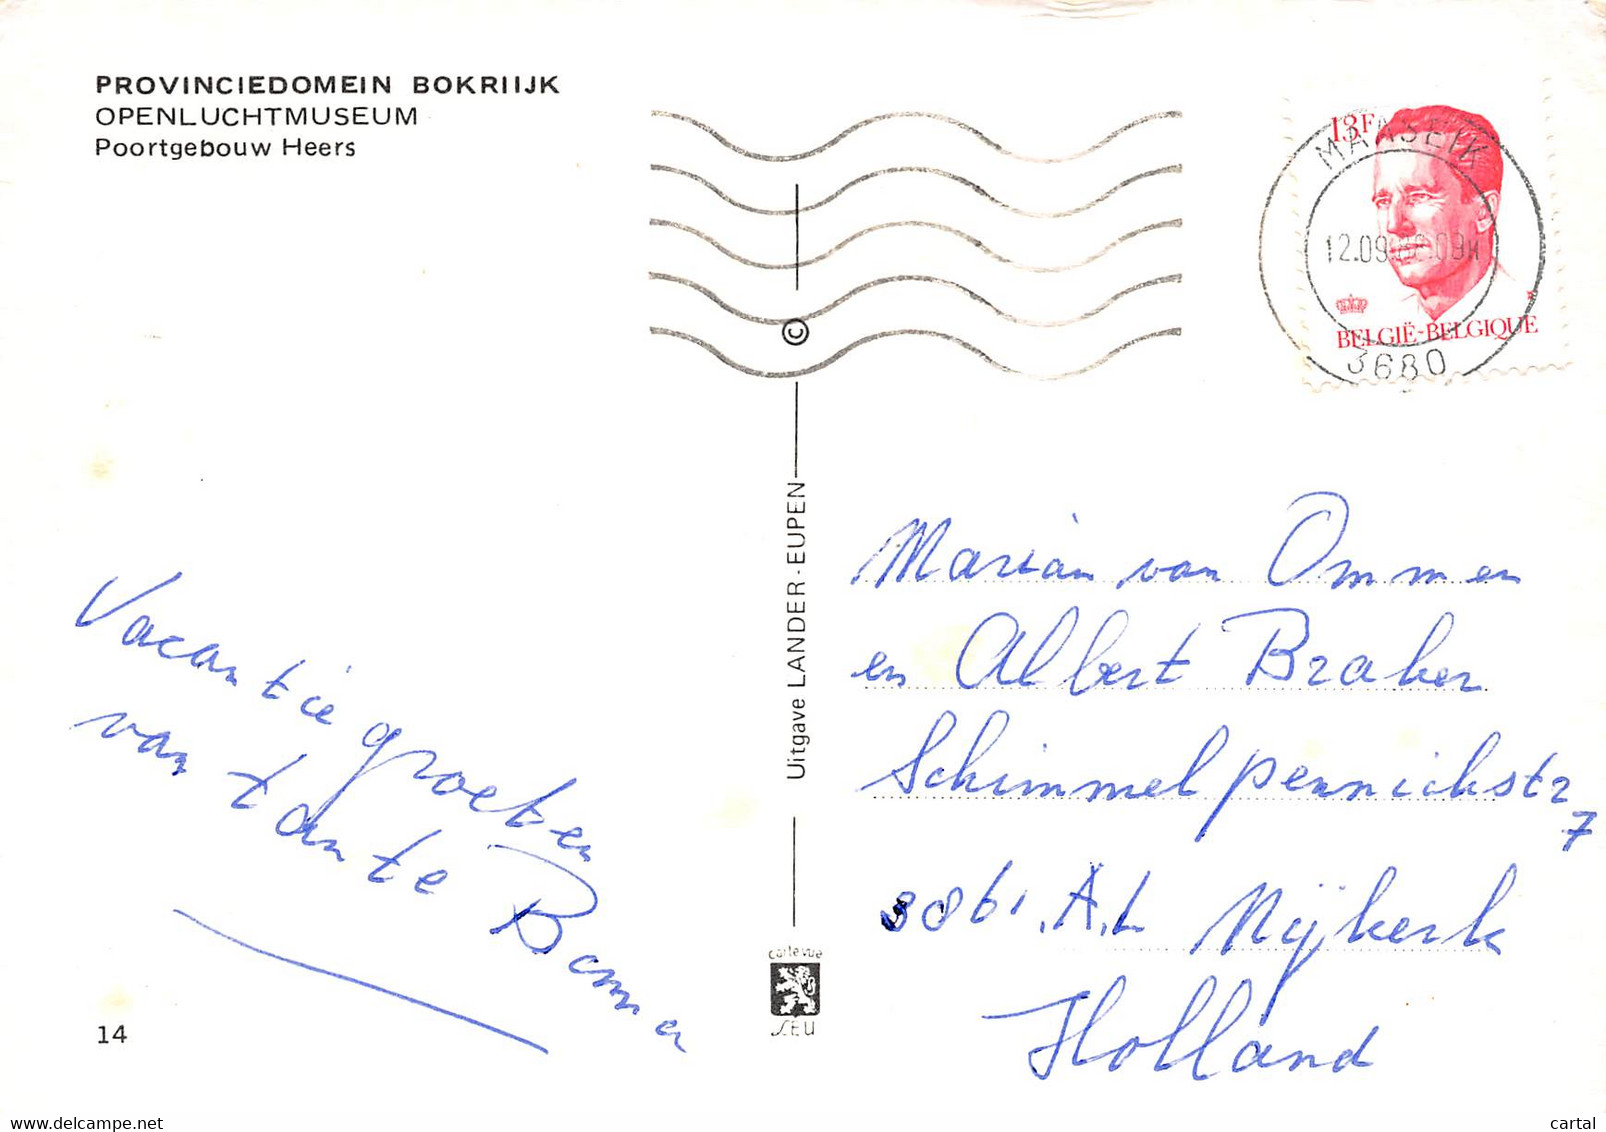 PROVINCIEDOMEIN BOKRIIJK
OPENLUCHTMUSEUM
Poortgebouw Heers
13F
MAASEIK
12.09
09H
BELGIË-BELGIQUE
3680
©
Uitgave LANDER-EUPEN
Vacantie groeten
van tante
Marian van Ommen
en Albert Braber
Schimmelpennichstr
7
3861.A.L Nijkerk
Holland
carte vue
14
delcampe.net
cartal